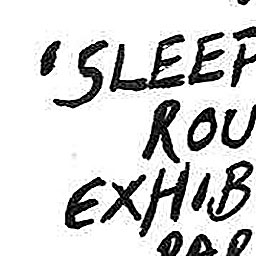 'SLEEP
ROU
EXHIB